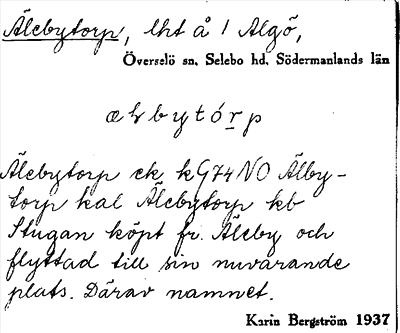 Älebytorp, lht å 1 Algö,
Överselö sn. Selebo hd. Södermanlands län
Älebytorp ek kG74NO Älby-
torp kal Älebytorp kb
Stugan köpt fr. Äleby och
flyttad till sin nuvarande
plats. Därav namnet.
Karin Bergström 1937